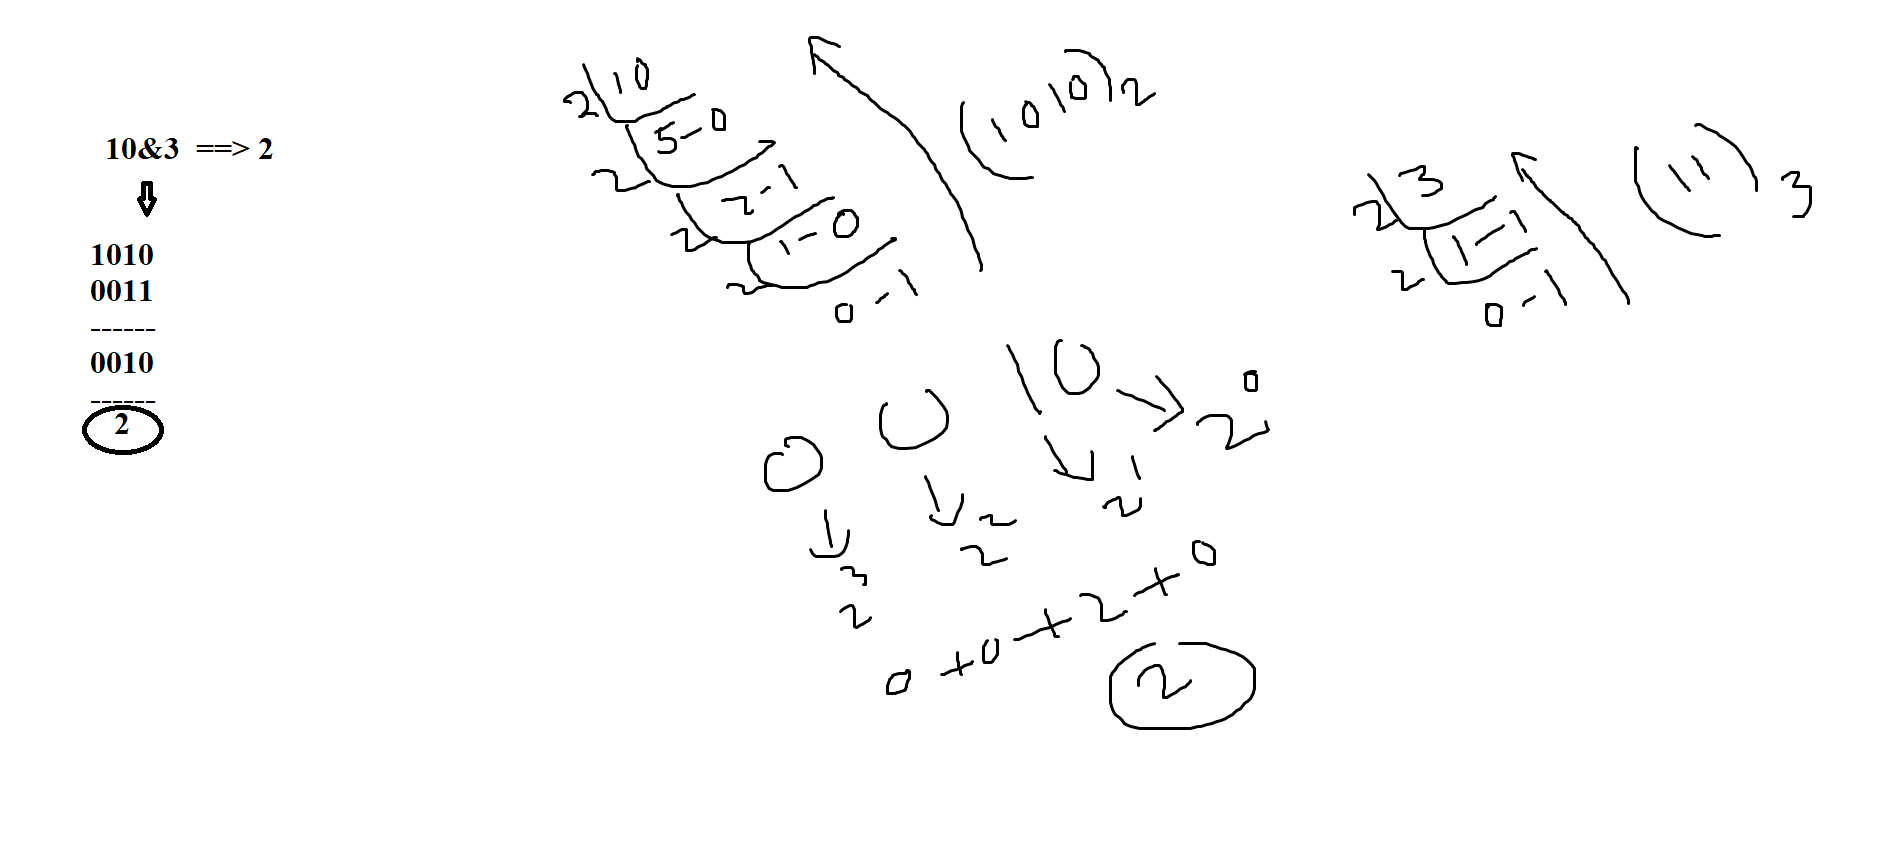 10&3 ==> 2
1010
0011
------
0010
------
2
2 10
2 5-0
2 2-1
2 1-0
0-1
(1010)2
2 3
2 1-1
0-1
(11)3
0 0 1 0
2^3 2^2 2^1 2^0
0+0+2+0
2